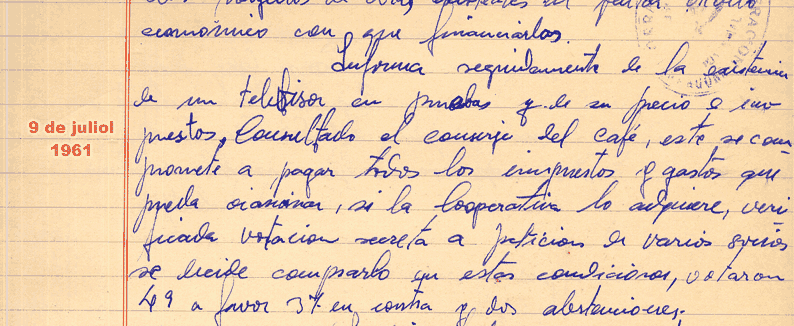 económico con que financiarlos.
Informa seguidamente de la existencia
de un televisor en pruebas y de su precio e im
puestos, Consultado el conserje del café, este se com
promete a pagar todos los impuestos y gastos que
pueda ocasionar, si la Cooperativa lo adquiere, veri
ficada votacion secreta a peticion de varios socios
se decide comprarlo en estas condiciones, votaron
49 a favor 37 en contra y dos abstenciones.
9 de juliol
1961